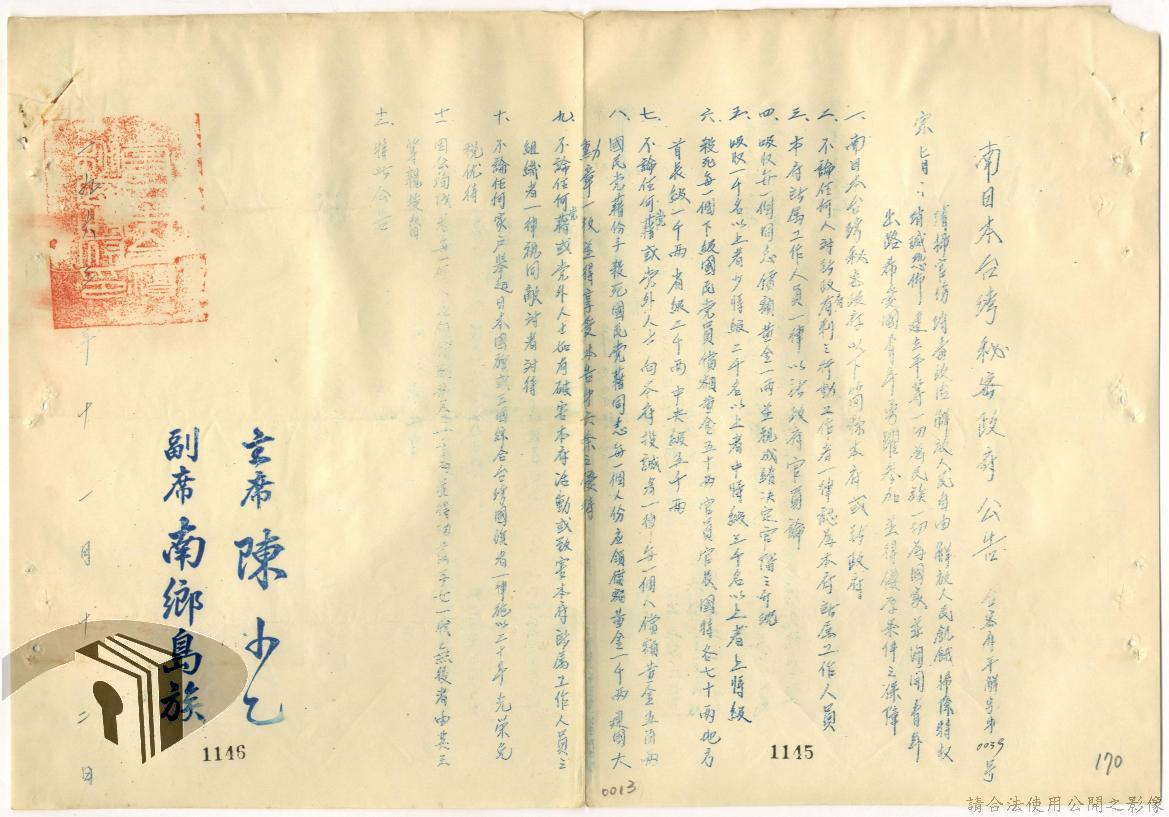 南日本台灣秘密政府公告 台密府平解字第0039号
宗旨：清掃官僚 消毒政治 解放人民自由 解放人民飢餓 掃除特奴
消滅恐怖 建立平等 一切為民族 一切為國家 並開闢青年
出路 希愛國青年 勇躍參加 並得優厚条件之保障
一、南日本台灣秘密政府以下簡稱本府或該政府
二、不論任何人对該政府有利之行動工作者一律認為本府所属工作人員
三、本府所属工作人員一律以該政府官員論
四、吸收每一個同志償額黄金一两並視成績决定官階之升绝
五、吸收一千名以上者少將級 二千名以上者中將級 三千名以上者上將級
六、殺死每一個下級國民党員償額黄金五十两 官員官長國特各七十两 地方
首長級一千两 省級二千两 中央級五千两
七、不論任何党籍或党外人士向本府投誠者一律每一個人償額黄金五两
八、國民党籍份子殺死國民党籍同志每一個人份应領償額黄金一千两 建國大
勳章一枚並得享受本告中六条之優待
九、不論任何党籍或党外人士如有破害本府活動或致害本府所属工作人員之
組織者一律視同敵对者对待
十、不論任何家户舉起日本國旗或三國綜合台灣國旗者一律施以二十年光荣免
税优待
十一、因公 者每一 無後者由其三
等親
十二、特此公告
主席 陳少乙
副席 南鄉島族
年十一月十二日
1146
1145
0013
170
請合法使用公開之影像